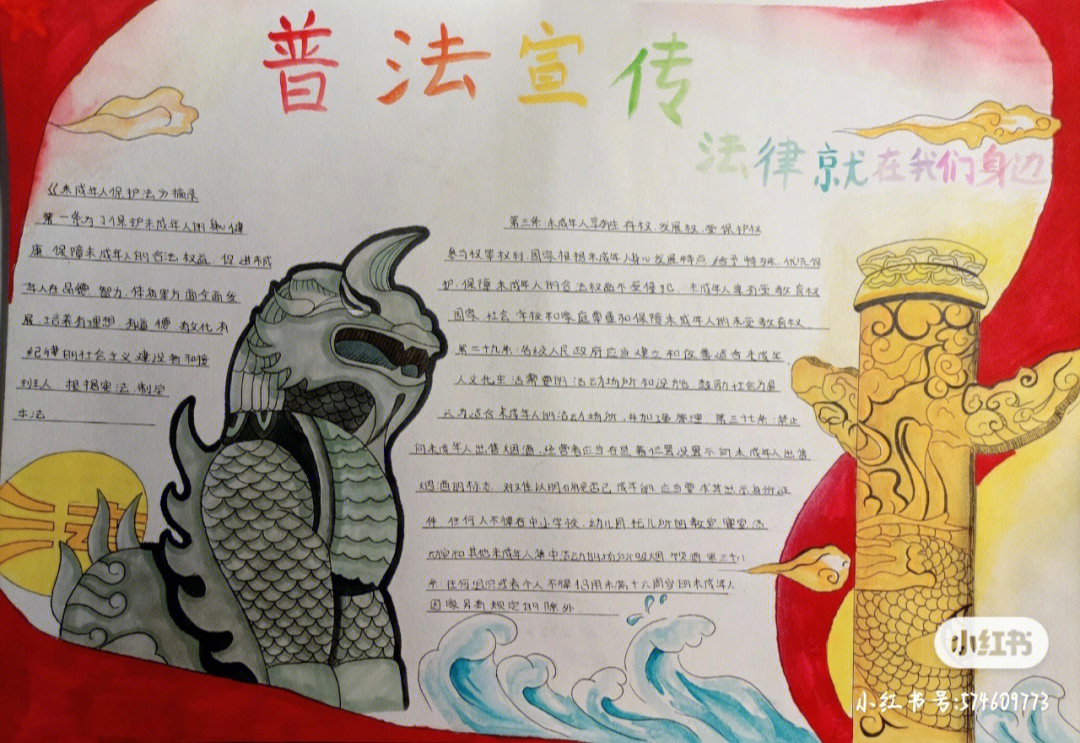 普法宣传
法律就在我们身边
《未成年人保护法》摘录
第一条为了保护未成年人的身心健
康、保障未成年人的合法权益、促进未成
年人在品德、智力、体质等方面全面发
展、培养有理想、有道德、有文化、有
纪律的社会主义建设者和接
班人、根据宪法制定
本法
第三条:未成年人享有生存权、发展权、受保护权
参与权等权利,国家根据未成年人身心发展特点给予特殊、优先保
护,保障未成年人的合法权益不受侵犯。未成年人享有受教育权
国家、社会、学校和家庭尊重和保障未成年人的未受教育权
第二十九条:各级人民政府应当建立和改善适合未成年
人文化生活需要的活动场所和设施,鼓励社会力量
兴办适合未成年人的活动场所,并加强管理。第三十七条:禁止
向未成年人出售烟酒,经营者应当在显著位置设置不向未成年人出售
烟酒的标志、对难以明确是否已成年的应当要求其出示身份证
件、任何人不得在中小学校、幼儿园、托儿所的教室、寝室、活
动室和其他未成年人集中活动的场所吸烟、饮酒 第三十八
条:任何组织或者个人不得招用未满十六周岁的未成年人
国家另有规定的除外
小红书
小红书号:574609773